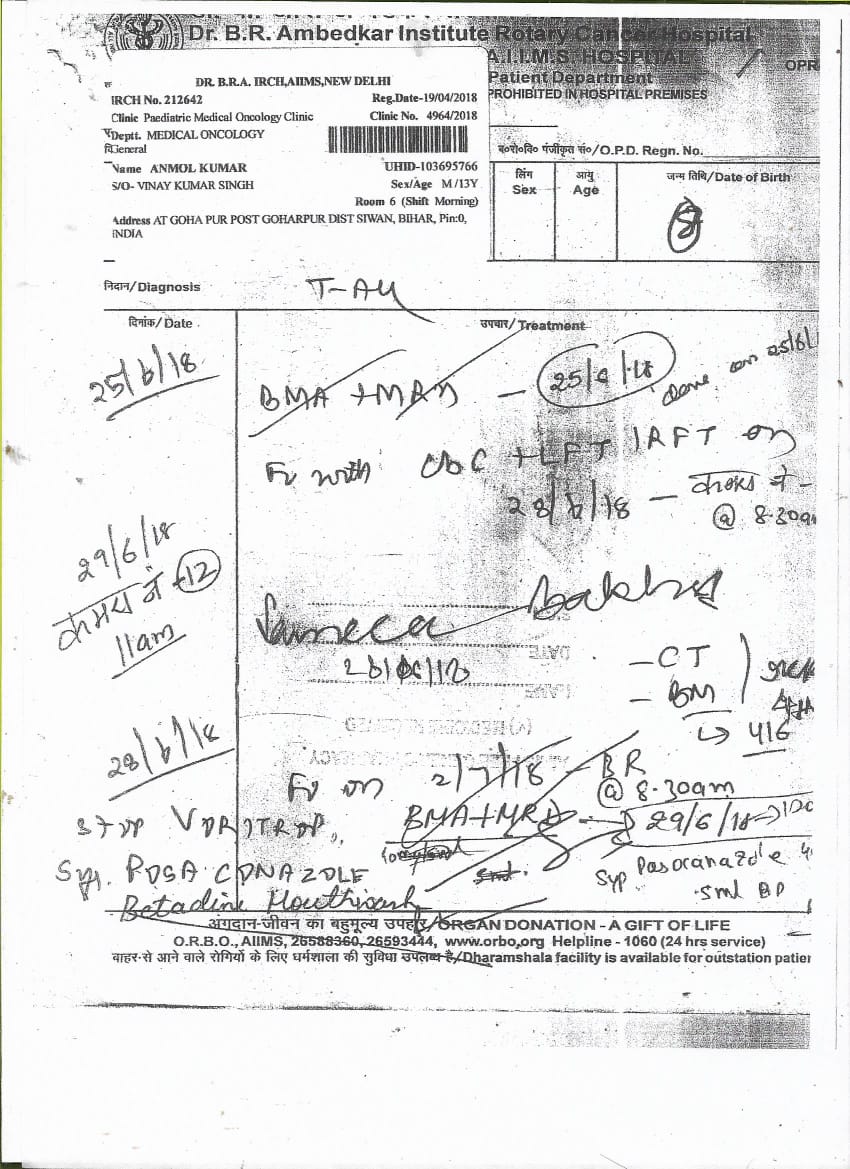 Dr. B.R. Ambedkar Institute Rotary Cancer Hospital
A.I.I.M.S. HOSPITAL
Patient Department
OPR
PROHIBITED IN HOSPITAL PREMISES
DR. B.R.A. IRCH,AIIMS,NEW DELHI
IRCH No. 212642
Reg.Date-19/04/2018
Clinic Paediatric Medical Oncology Clinic
Clinic No. 4964/2018
Deptt. MEDICAL ONCOLOGY
General
Name ANMOL KUMAR
UHID-103695766
S/O- VINAY KUMAR SINGH
Sex/Age M /13Y
Room 6 (Shift Morning)
Address AT GOHA PUR POST GOHARPUR DIST SIWAN, BIHAR, Pin:0,
INDIA
ब०रो०वि० पंजीकृत सं०/O.P.D. Regn. No.
लिंग
Sex
आयु
Age
जन्म तिथि/Date of Birth
निदान/Diagnosis
दिनांक/Date
उपचार/Treatment
25/6/18
BMA + MRD - 25/6/18
done on 25/6/
FU with CBC + LFT / RFT on
28/6/18 -
@ 8.30am
29/6/18
12
11am
Sameer Bakhshi
DATE
- CT
- BM
416
28/6/18
FU on 2/7/18 - BR
@ 8.30am
STOP VORITROP,
BMA + MRD - 29/6/18
Syp. POSACONAZOLE
Syp Posoranazole
5ml BD
Betadine Mouthwash
अंगदान-जीवन का बहुमूल्य उपहार/ORGAN DONATION - A GIFT OF LIFE
O.R.B.O., AIIMS, 26588360, 26593444, www.orbo,org Helpline - 1060 (24 hrs service)
बाहर-से आने वाले रोगियों के लिए धर्मशाला की सुविधा उपलब्ध है/Dharamshala facility is available for outstation patier